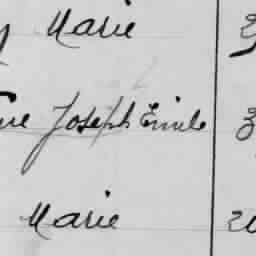 Marie
Joseph Emile
Marie